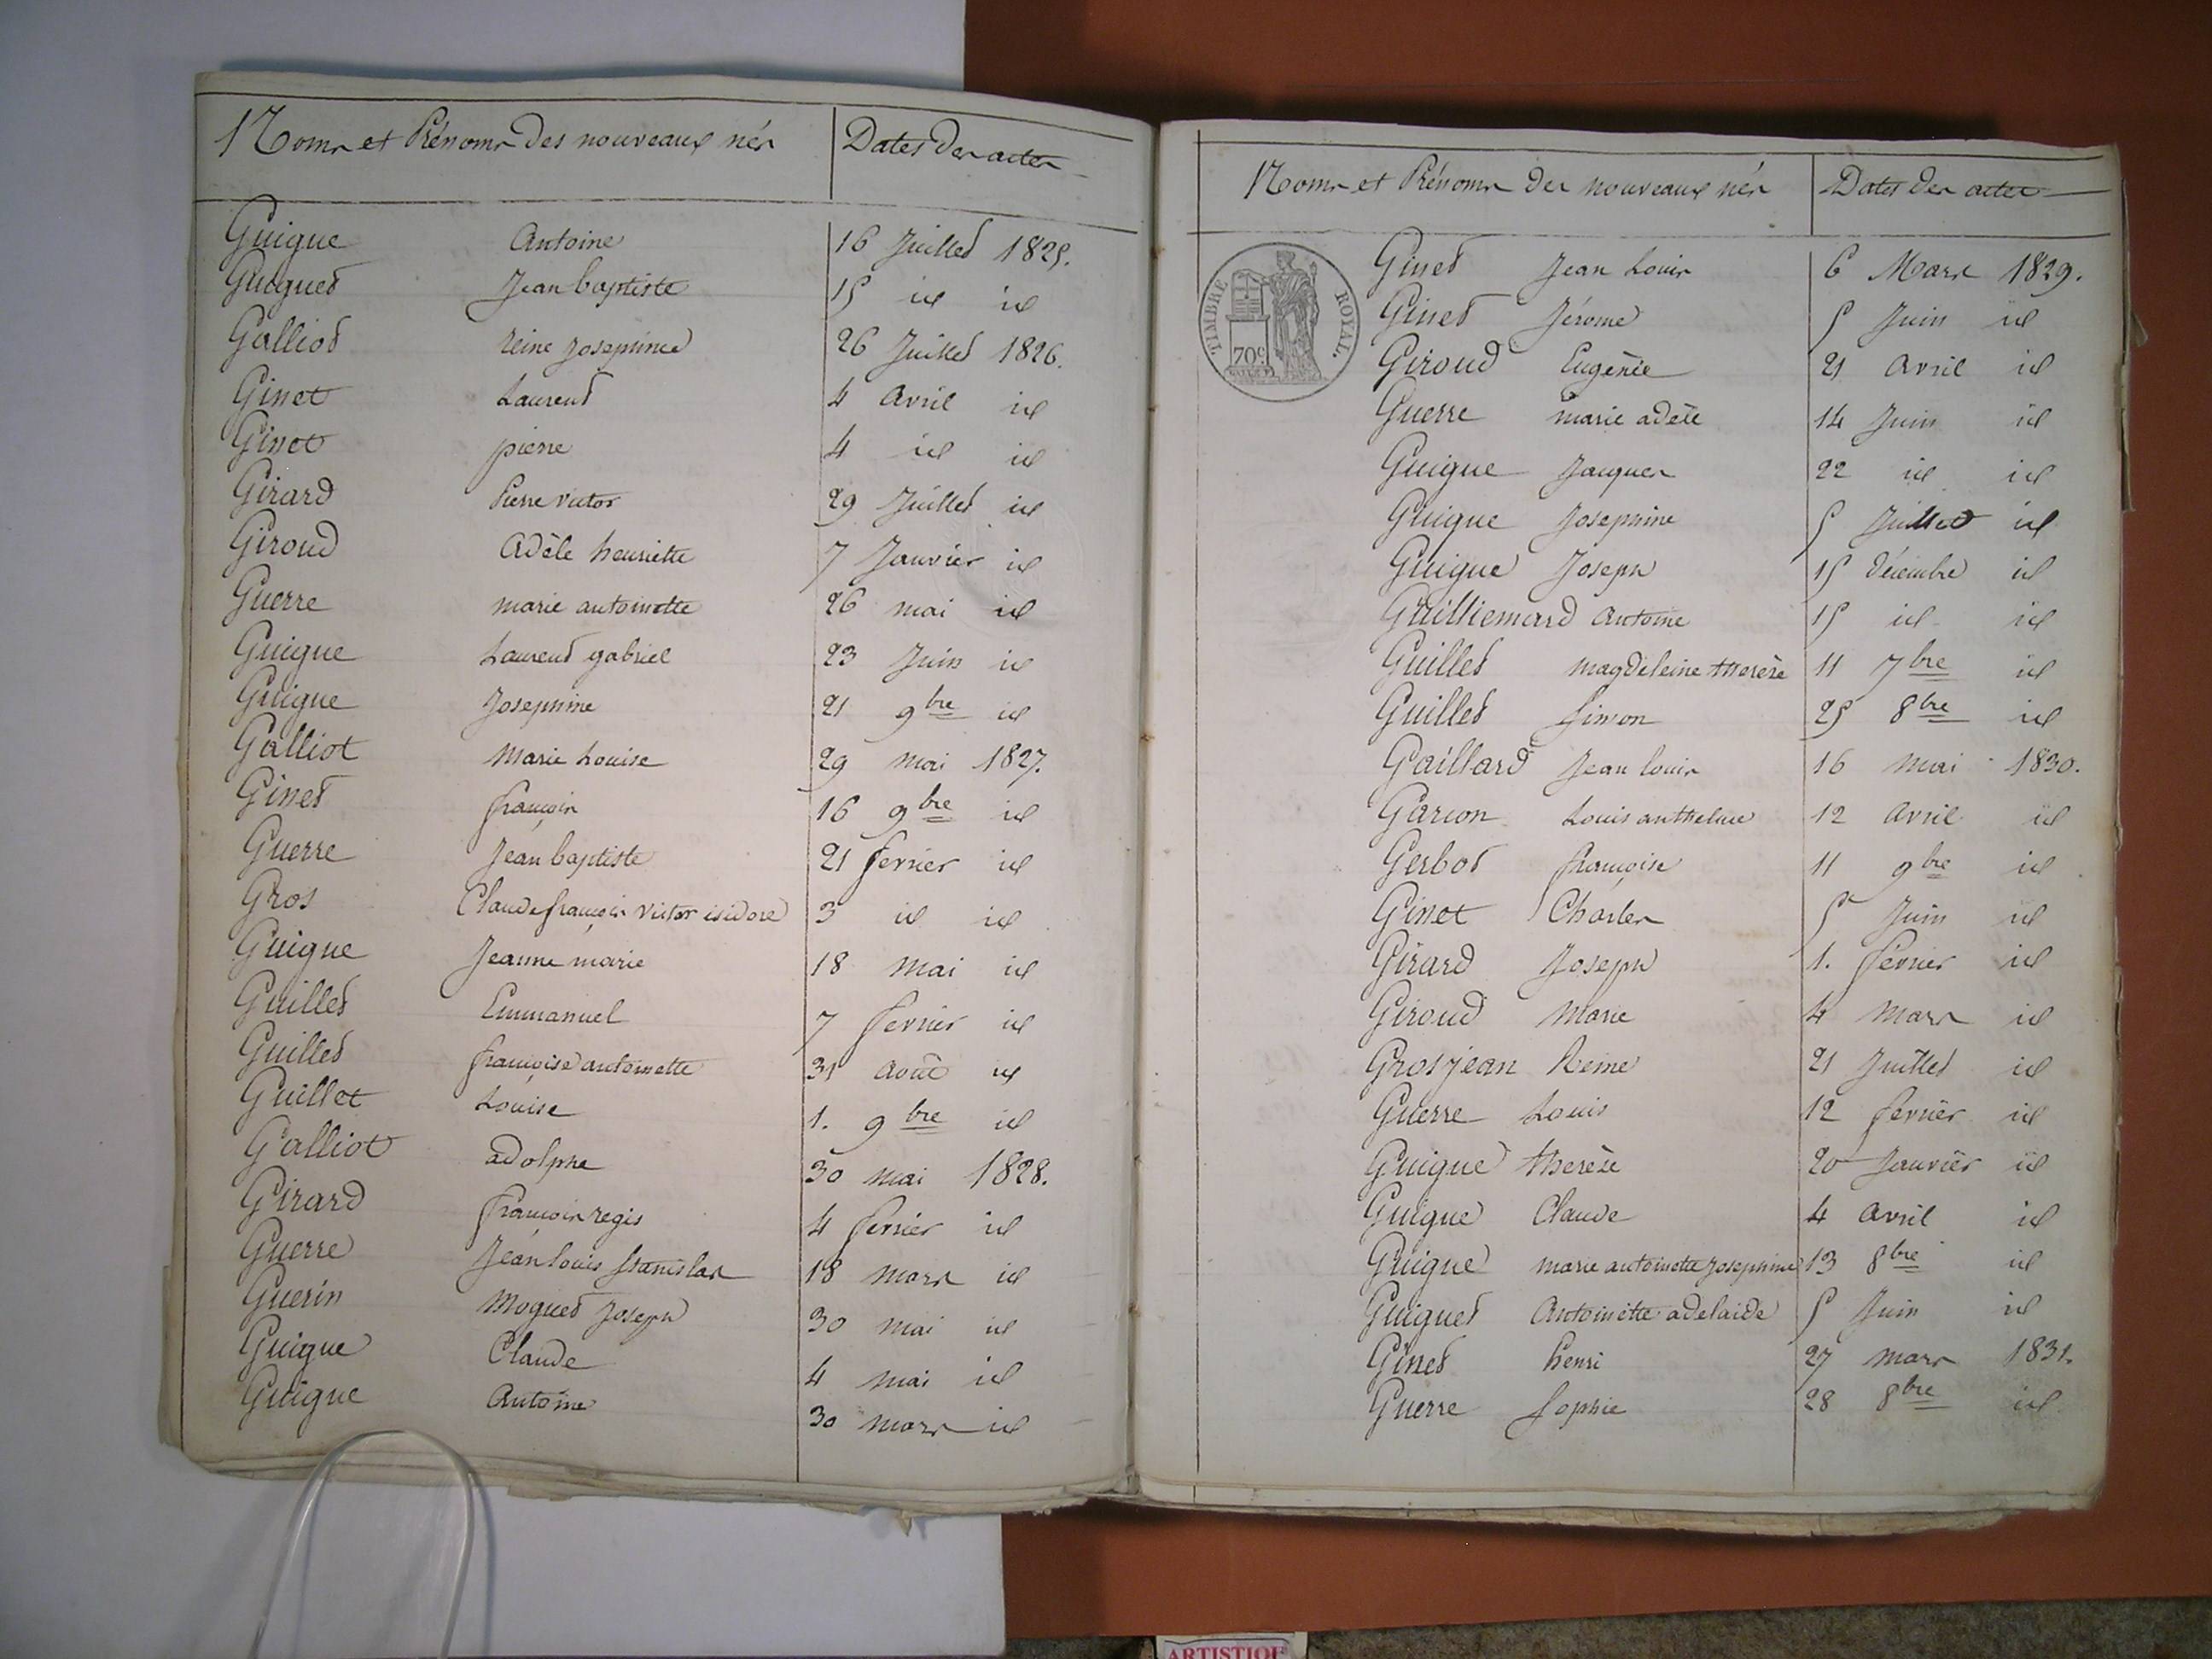 Noms et Prénoms des nouveaux nés Dates des actes
Guigue Antoine 16 Juillet 1825.
Guiguet Jean baptiste 15 id id
Galliot reine Josephine 26 Juillet 1826.
Ginet Laurent 4 avril id
Ginet pierre 4 id id
Girard Pierre victor 29 Juillet id
Giroud Adèle henriette 7 Janvier id
Guerre marie antoinette 26 mai id
Guigue Laurent gabriel 23 Juin id
Guigue Josephine 21 9bre id
Galliot Marie Louise 29 mai 1827.
Ginet françois 16 9bre id
Guerre Jean baptiste 21 fevrier id
Gros Claude françois victor isidore 3 id id
Guigue Jeanne marie 18 mai id
Guillet Emmanuel 7 fevrier id
Guillet françoise antoinette 31 août id
Guillet Louise 1. 9bre id
Galliot adolphe 30 mai 1828.
Girard françois regis 4 fevrier id
Guerre Jean louis stanislas 18 mars id
Guerin Moguet Joseph 30 mai id
Guigue Claude 4 mai id
Guigue Antoine 30 mars id
Noms et Prénoms des nouveaux nés Dates des actes
TIMBRE ROYAL.
70c
Ginet Jean Louis 6 Mars 1829.
Ginet Jérome 5 Juin id
Giroud Eugènie 21 avril id
Guerre marie adèle 14 Juin id
Guigue Jacques 22 id id
Guigue Josephine 5 Juillet id
Guigue Joseph 15 décembre id
Guilliemard Antoine 15 id id
Guillet magdeleine therèse 11 7bre id
Guillet Simon 25 8bre id
Gaillard Jean louis 16 mai 1830.
Garcon Louis anthelme 12 avril id
Gerbot françoise 11 9bre id
Ginet Charles 5 Juin id
Girard Joseph 1. fevrier id
Giroud Marie 4 mars id
Grosjean Reine 21 Juillet id
Guerre Louis 12 fevrier id
Guigue therèse 20 Janvier id
Guigue Claude 4 avril id
Guigue marie antoinette Josephine 13 8bre id
Guiguet Antoinette adelaide 5 Juin id
Ginet henri 27 mars 1831.
Guerre Sophie 28 8bre id